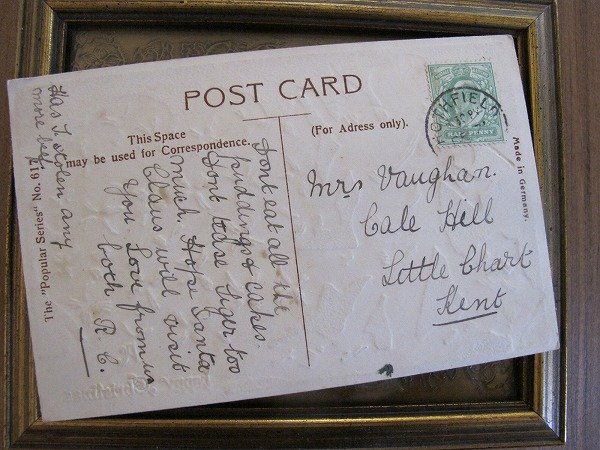 POST CARD
This Space
may be used for Correspondence.
(For Adress only).
The "Popular Series" No. 617
Made in Germany.
HALF PENNY
Mrs Vaughan.
Cale Hill
Little Chart
Kent
Dont eat all the
puddings & cakes.
Dont tease tiger too
much. Hope Santa
Claus will visit
You Love from us
both R. C.
Has I stolen any
more